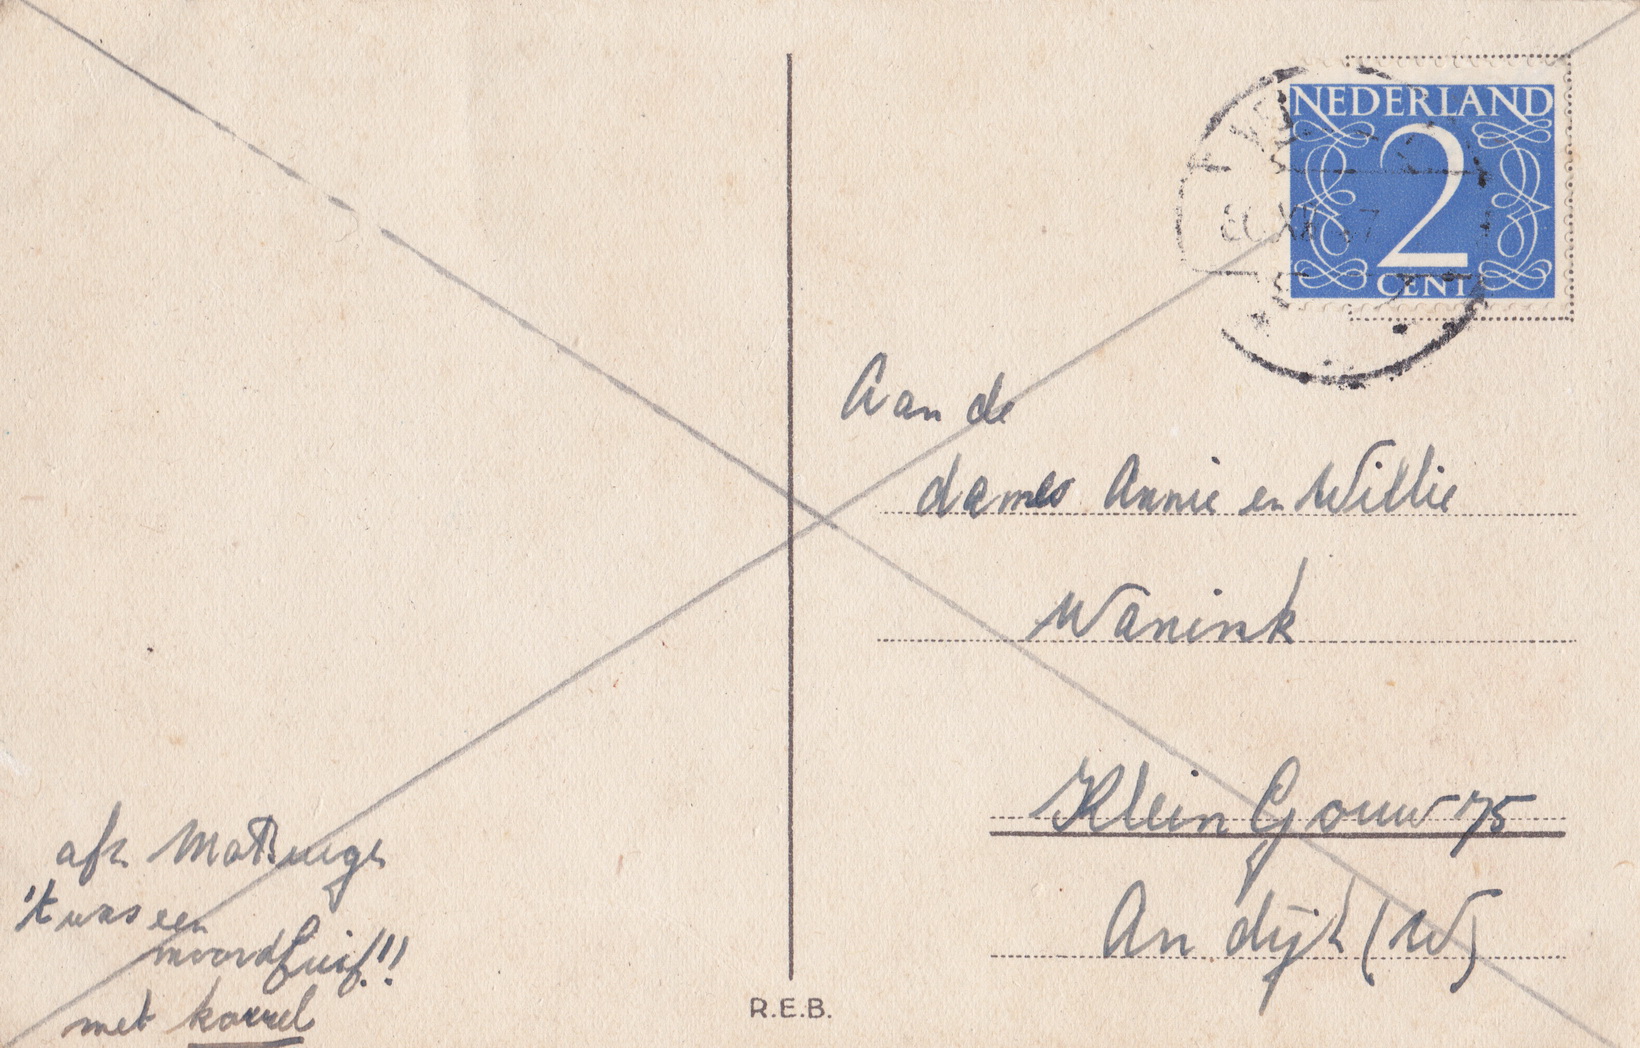 NEDERLAND
2
CENT
Aan de
dames Annie en Willie
Wanink
Klein Gouw 75
Andijk (W)
afz
't was een
moordfuif!!
met korrel
R.E.B.